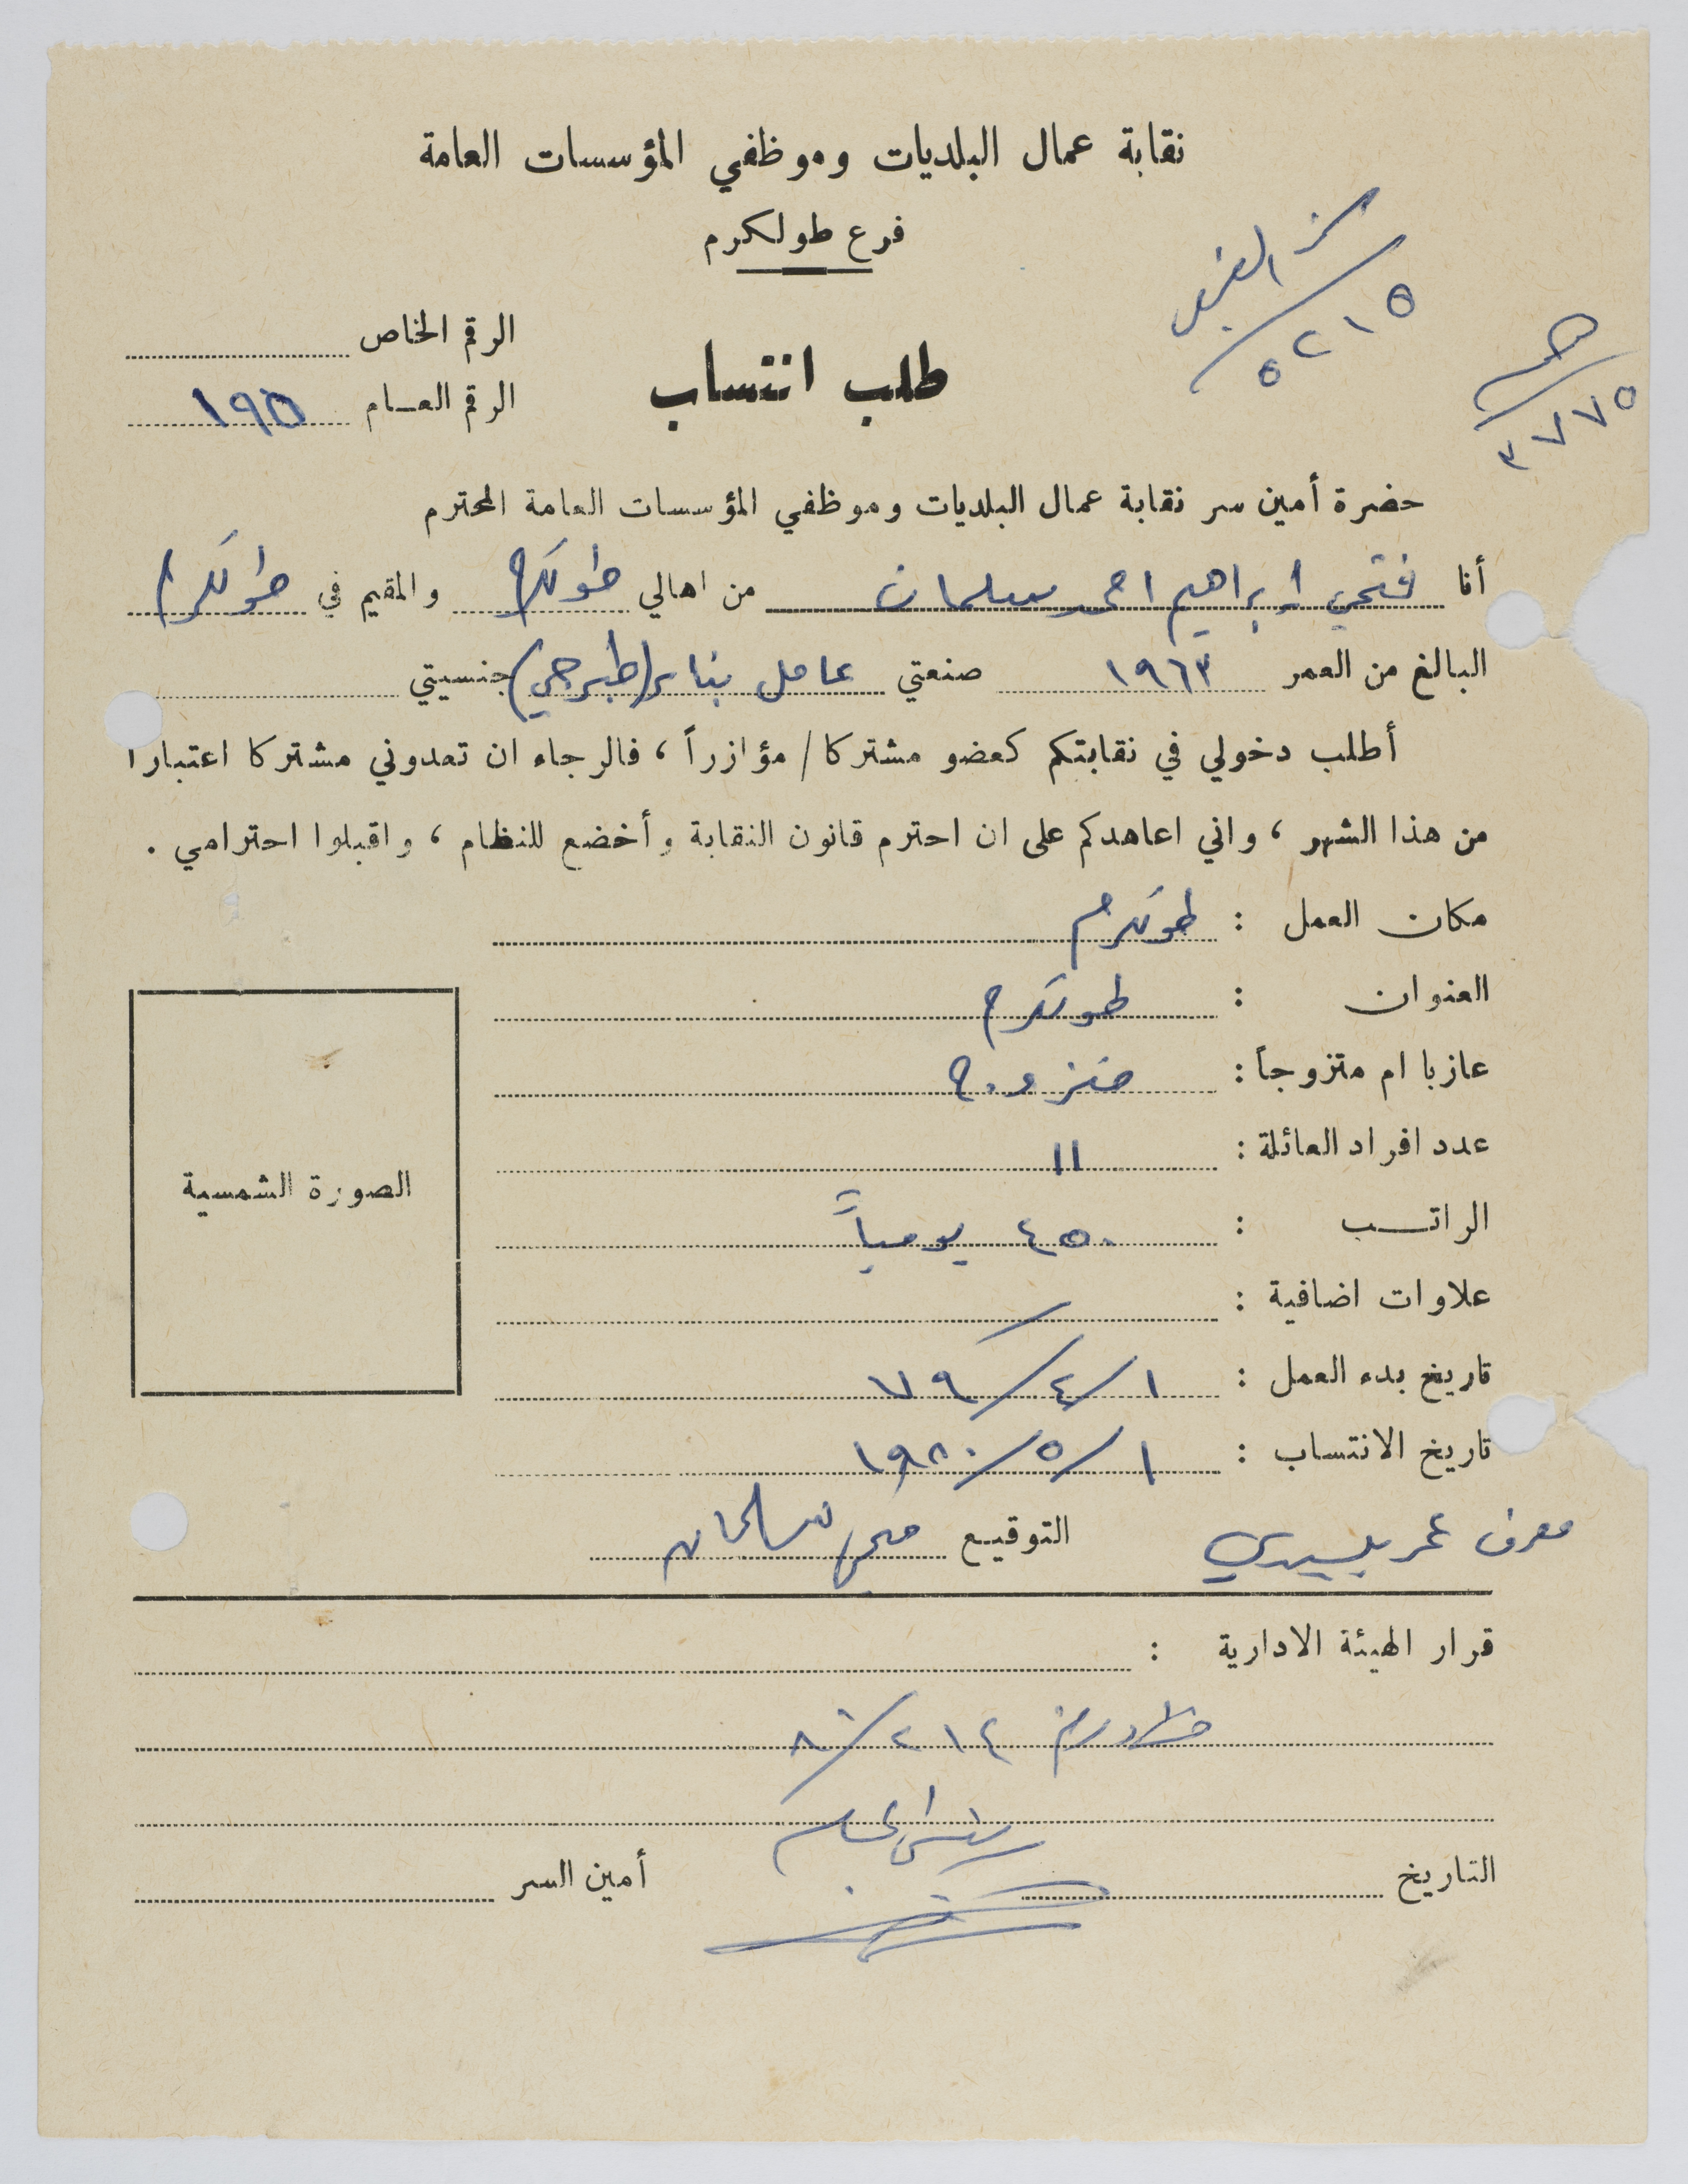 نقابة عمال البلديات وموظفي المؤسسات العامة
فرع طولكرم
٥٢١٥
٣٧٧٥
الرقم الخاص
طلب انتساب
الرقم العـام ١٩٥
حضرة أمين سر نقابة عمال البلديات وموظفي المؤسسات العامة المحترم
أنا فتحي ابراهيم احمد سلمان من اهالي طولكرم والمقيم في طولكرم
البالغ من العمر ١٩٦٣ صنعتي عامل بناء (طبرجي) جنسيتي
أطلب دخولي في نقابتكم كعضو مشتركا / مؤازراً ، فالرجاء ان تعدوني مشتركا اعتبارا
من هذا الشهر ، واني اعاهدكم على ان احترم قانون النقابة وأخضع للنظام ، واقبلوا احترامي .
مكان العمل : طولكرم
العنوان : طولكرم
عازبا ام متزوجاً : متزوج
عدد افراد العائلة : ١١
الراتـب : ٤٥٠ يومياً
علاوات اضافية :
تاريخ بدء العمل : ١/٤/٧٩
تاريخ الانتساب : ١/٥/١٩٨٠
الصورة الشمسية
معرف عمر بليبدي التوقيـع فتحي سلمان
قرار الهيئة الادارية :
٢١٤/٨٠
التاريخ
أمين السر